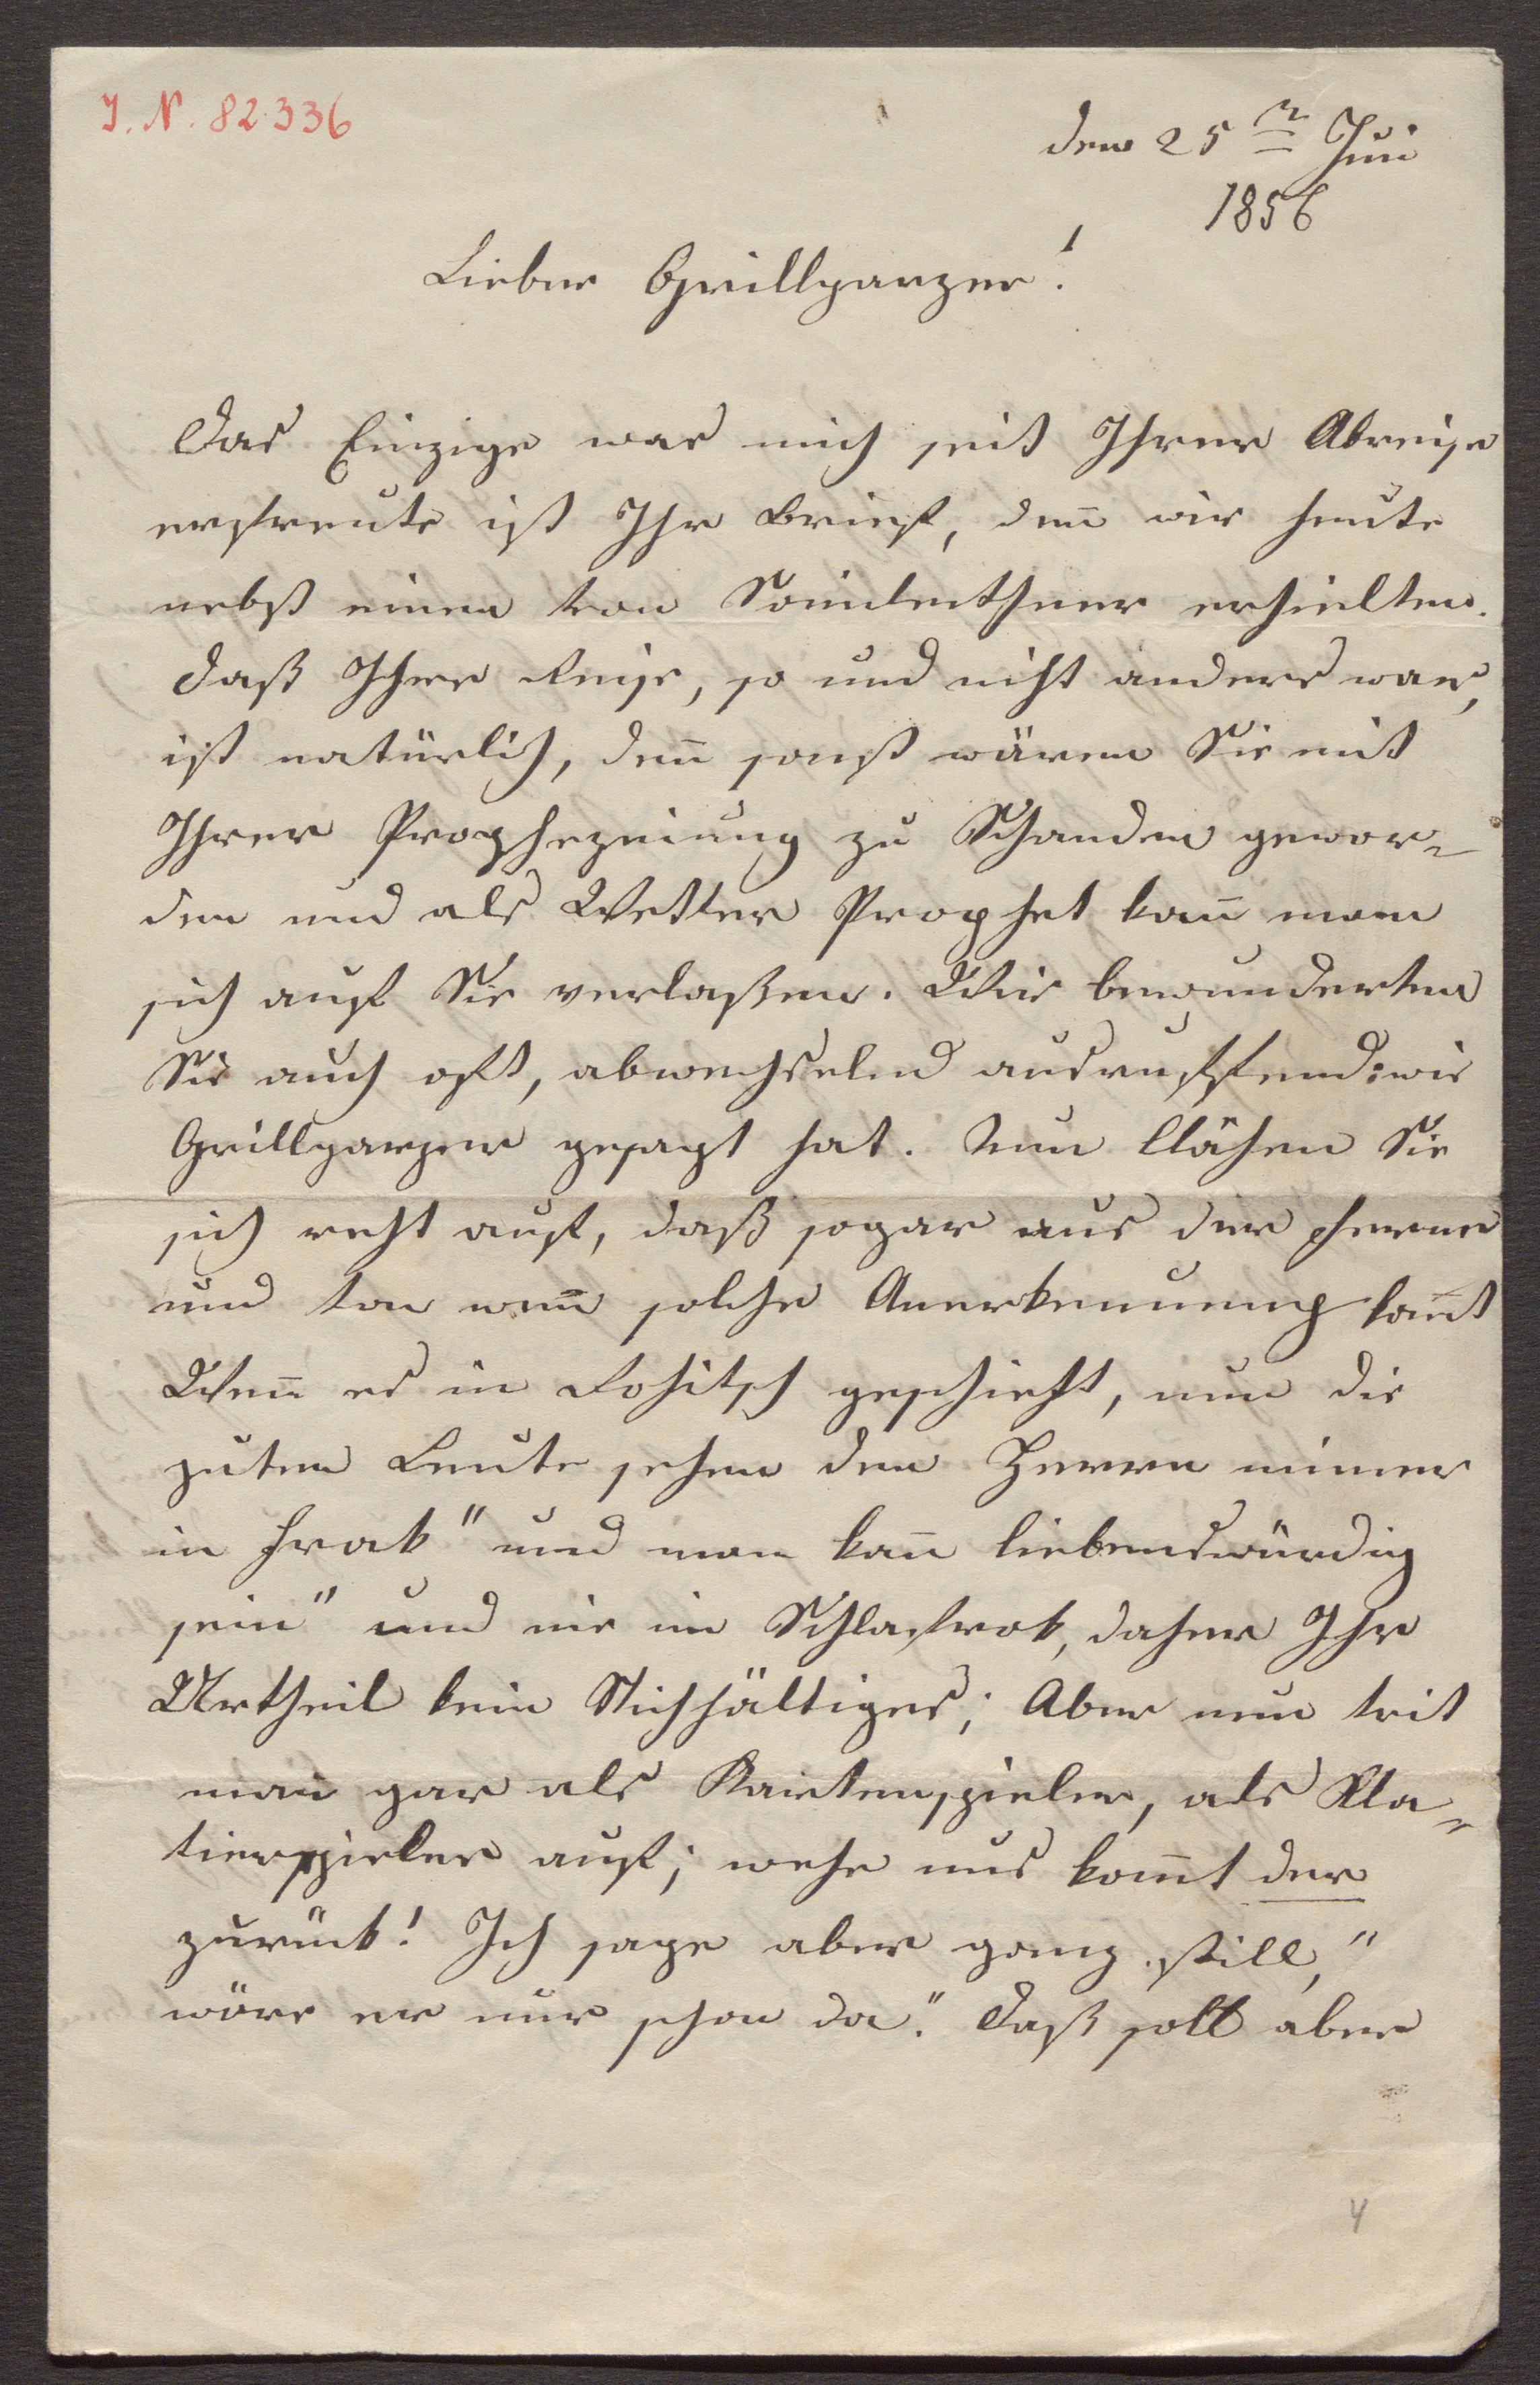 I. N. 82.336
den 25 n Juni
1856
Lieber Grillparzer!
Das Einzige was mich seit Ihrer Abreise
erfreute ist Ihr Brief, den̄ wir heute
nebst einen von Sonnleithner erhielten.
Daß Ihre Reise, so und nicht anders war,
ist natürlich, den̄ sonst wären Sie mit
Ihrer Prophezeiung zu Schanden gewor-
den und als Wetter Prophet kan̄ man
sich auf Sie verlaßen. Wir bewunderten
Sie auch oft, abwechselnd ausruffend: wie
Grillparzer gesagt hat. Nun blähen Sie
sich recht auf, daß sogar aus der pherne
und von wem solche Anerkennung kom̄t
Wen̄ es in Rohitsch geschieht, nun die
guten Leute sehen den Herrn immer
in Frak "und man kan̄ liebenswürdig
sein" und nie im Schlafrok, daher Ihr
Urtheil kein Stichhältiges; Aber nun trit
man gar als Kartenspieler, als Kla-
vierspieler auf; wehe uns kom̄t der
zurück! Ich sage aber ganz still, "
wäre er nur schon da." Daß soll aber
4